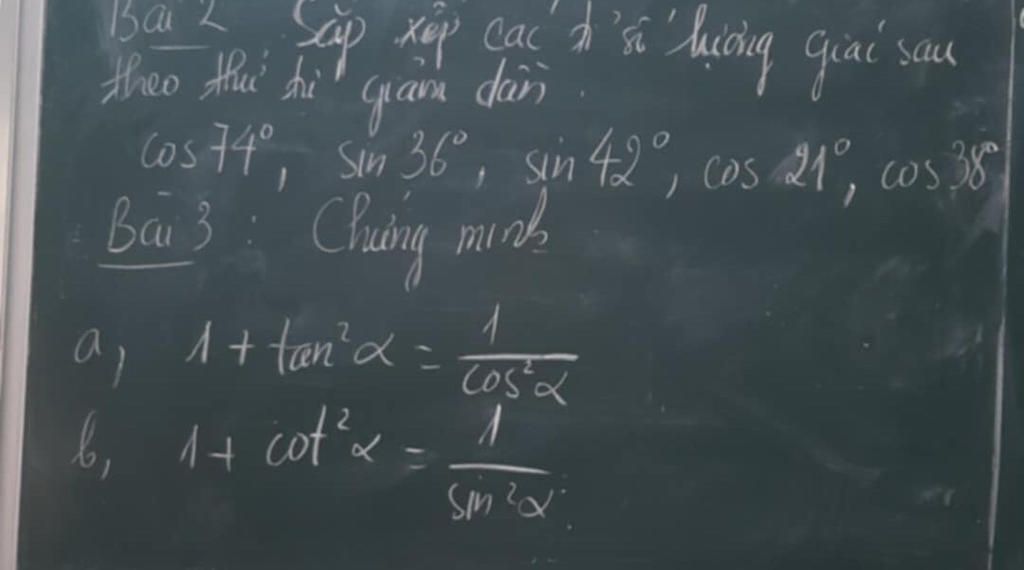 Bài 2 Sắp xếp các tỉ số lượng giác sau
theo thứ tự giảm dần.
cos 74°, sin 36°, sin 42°, cos 21°, cos 38°
Bài 3: Chứng minh
a, 1 + tan²α = 1/cos²α
b, 1 + cot²α = 1/sin²α.